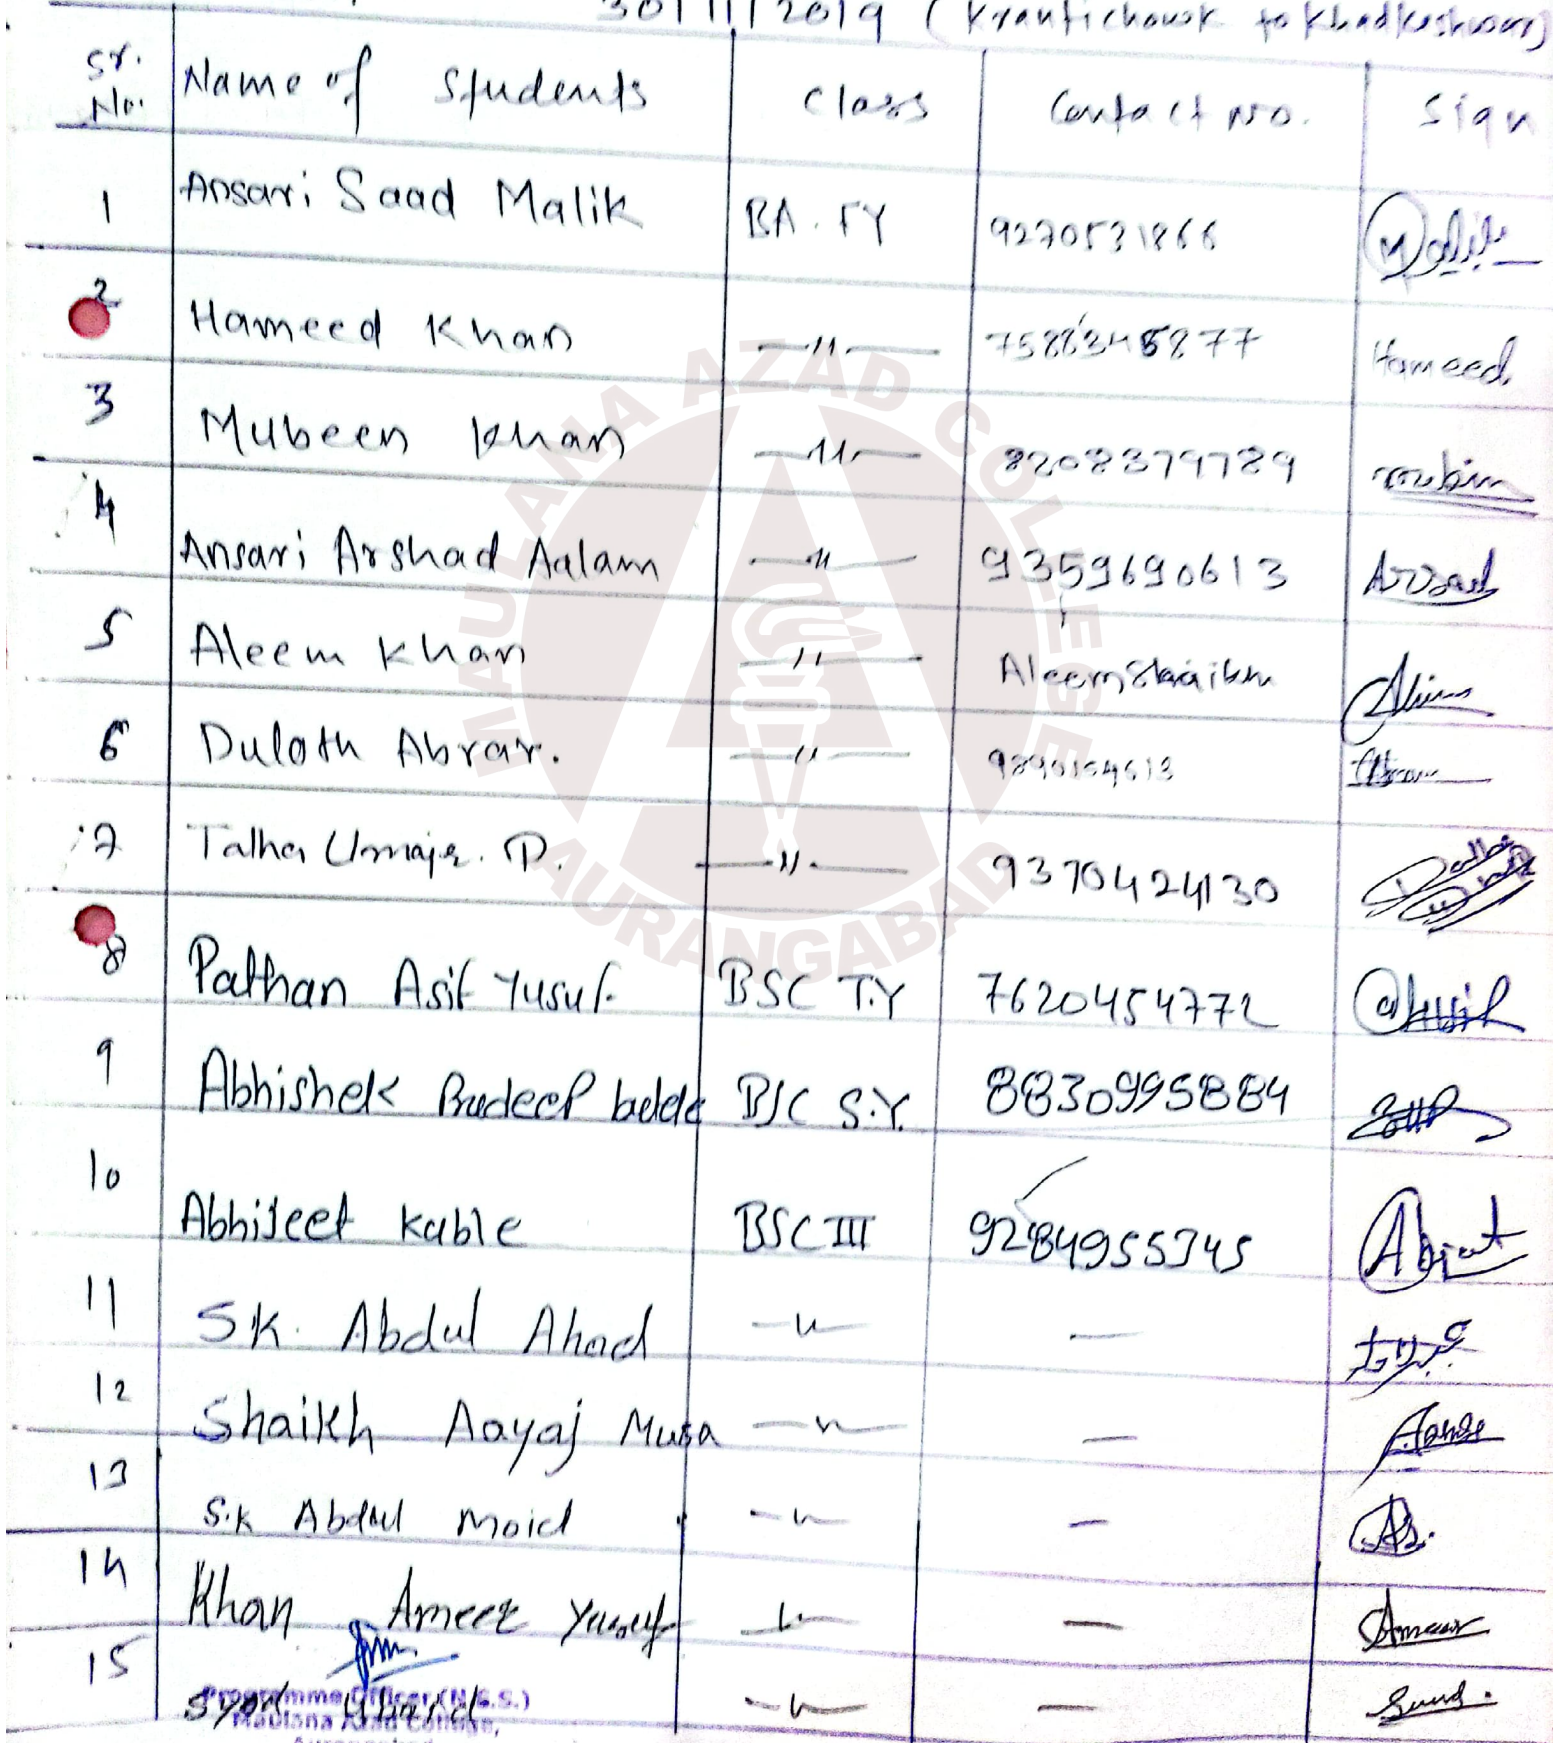 30/11/2019 (Krantichowk to Khadkeshwar)
Sr. No. Name of Students Class Contact No. Sign
1 Ansari Saad Malik BA. FY 9270531866 Malik
2 Hameed Khan —11— 7588345877 Hameed
3 Mubeen Khan —11— 8208379789 mubin
4 Ansari Arshad Aalam —11— 9359690613 Arsad
5 Aleem Khan —11— Aleem Shaikh Alim
6 Abrar. —11— 9890154613
7 Talha Umair. P. —11— 9370424130
8 Pathan Asif Yusuf. BSC T.Y 7620454772
9 Abhishek Pradeep BSC S.Y. 8830995884
10 Abhijeet Kable BSC III 9284955745 Abjeet
11 SK. Abdul Ahad —11— —
12 Shaikh Aayaj Musa —11— —
13 S.K Abdul Moid —11— —
14 Khan Ameer Yusuf —11— — Ameer
15 Syed —11— —
Programme Officer (N.S.S.)
Maulana Azad College,
Aurangabad
MAULANA AZAD COLLEGE
AURANGABAD